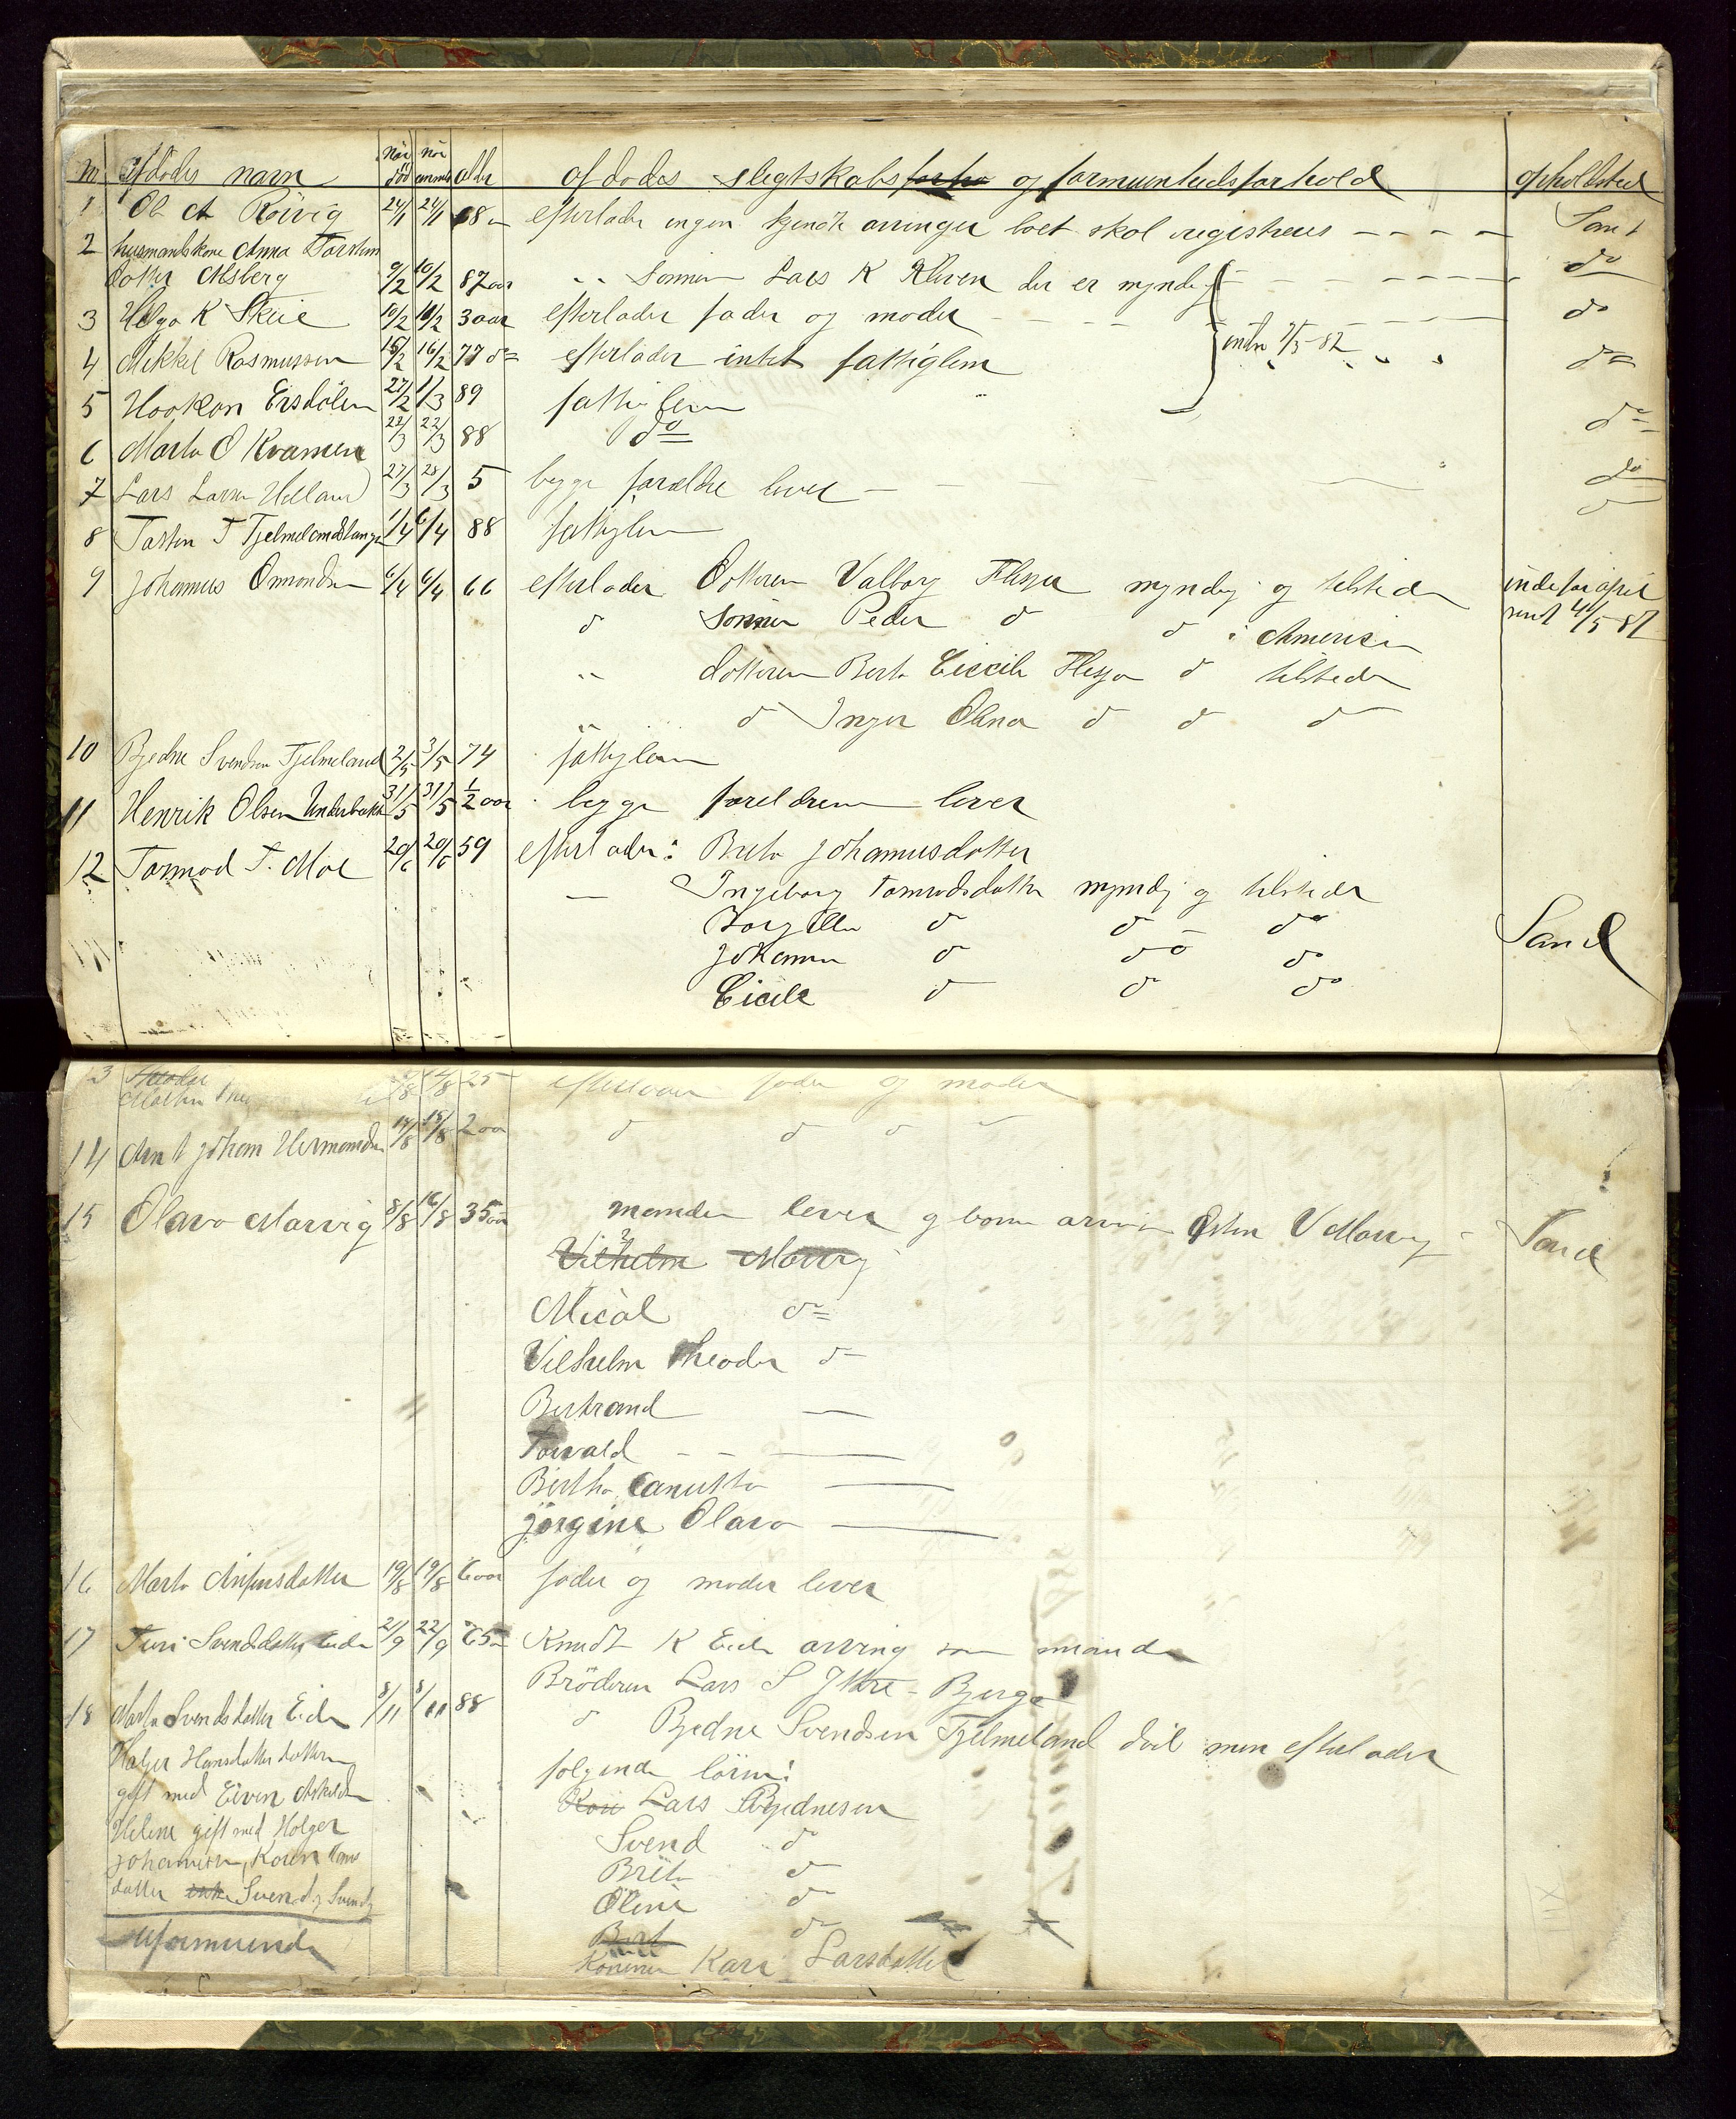 Nr afdødes navn når død når anmelt alder afdødes slegtskabs forho og formuenhedsforhold opholdsted
1 Ole A Røivig 24/1 24/1 68 efterlader ingen kjendte arvinger boet skal registreres - - - - Sand
2 husmandskone Anna Torsten
dotter Alsberg 9/2 10/2 87 aar " Sønnen Lars K Kleven der er myndig do
3 Helga K Skeie 10/2 10/2 3 aar efterlader fader og moder do
4 Mikkel Rasmussen 15/2 16/2 77 do efterlader intet fattiglem indn 7/3-82 do
5 Haakon Eisdalen 27/2 1/3 89 fattiglem do
6 Marta O Kvamen 22/3 22/3 88 do do
7 Lars Larsen Helland 27/3 28/3 5 begge forældre lever
8 Tosten T Tjelmelandstangen 1/4 6/4 88 fattiglem
9 Johannes Omundsen 6/4 6/4 66 efterlader Dotteren Valborg Flesja myndig og tilstede inde for april
d Sønnen Peder d d i Amerika med 4/5-82
" dotteren Berta Ceccile Flesja d tilstede
" d Inger Olena d d d
10 Bjedne Svendsen Tjelmeland 2/5 3/5 74 fattiglem
11 Henrik Olsen Underbakke 31/5 31/5 1/2 aar begge foreldrene lever
12 Tormod T. Moe 20/6 20/6 59 efterlader: Brita Johannesdotter
— Ingeborg Tormodsdotter myndig og tilstede
Borgilla d d do
Johanna d do do Sand
Cicele d d do
13 Martin 25 efterlever fader og moder
14 Arnt Johan Hermansen 14/8 15/8 2 aar d d d
15 Olava Marvig 8/8 16/8 35 aar manden lever og børn arvin Osten V Marvig - Sand
Vilhelm Marvig
Mical do
Vilhelm Theodor d
Bertrand —
Torvald - - —
Bertha Canutta —
Jørgine Olava —
16 Marta Anfinsdotter 19/8 19/8 6 aar fader og moder lever
17 Turi Svendsdotter Eide 21/9 22/9 65 Knudt K Eide arving som mande
Brøderen Lars S Ytre-Bjerga
18 Marta Svendsdotter Eide 8/11 8/11 88 d Bjedne Svendsen Tjelmeland død men efterlader
Holger Hansdotter dotteren følgende børn:
gift med Eiven Askildsen Kari Lars Bjednesen
Helene gift med Holger Svend d
Johannesen, Karen Hans Brita d
datter Svend og Svend Oline d
Berta d
Uformuende Konen Kari Larsdotter